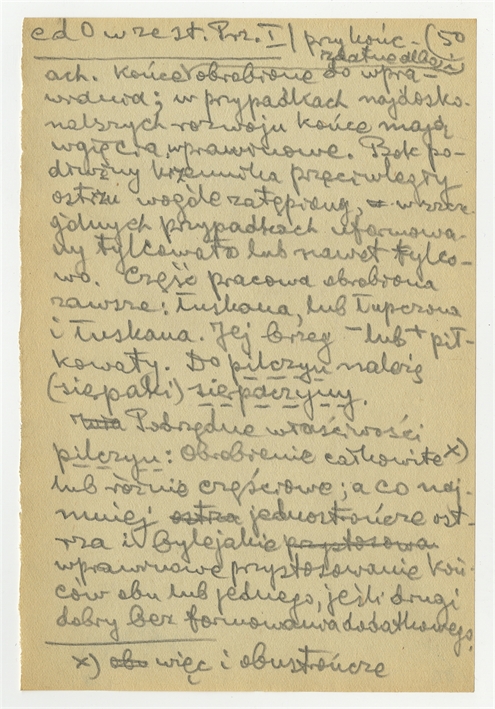 cd 0 wrzest. Prz. I) przykońc- (50
zdatne dbaś
ach. Końce obrobione do wpra-
wienia; w przypadkach najdosko-
nalszych rozwoju końce mają
wgięcia wprawinowe. Bok po-
dłużny krzemnika przeciwległy
ostrzu wogóle zatępiony, w szcze-
gólnych przypadkach uformowa-
ny tylcowato lub nawet tylco-
wo. Część pracowa obrobiona
zawsze: łuskana, lub łupczona
i łuskana. Jej brzeg - lub + pił-
kowaty. Do pilczyn należą
(sierpaki) sierpaczyny.
Pobrzędne właściwości
pilczyn: Obrobienie całkowite x)
lub różnie częściowe; a co naj-
mniej ostrza jednostrończe ost-
rza i bylejakie przystosowa
wprawinowe przystosowanie koń-
ców obu lub jednego, jeśli drugi
dobry bez formowania dodatkowego.
x) obu więc i obustrończe